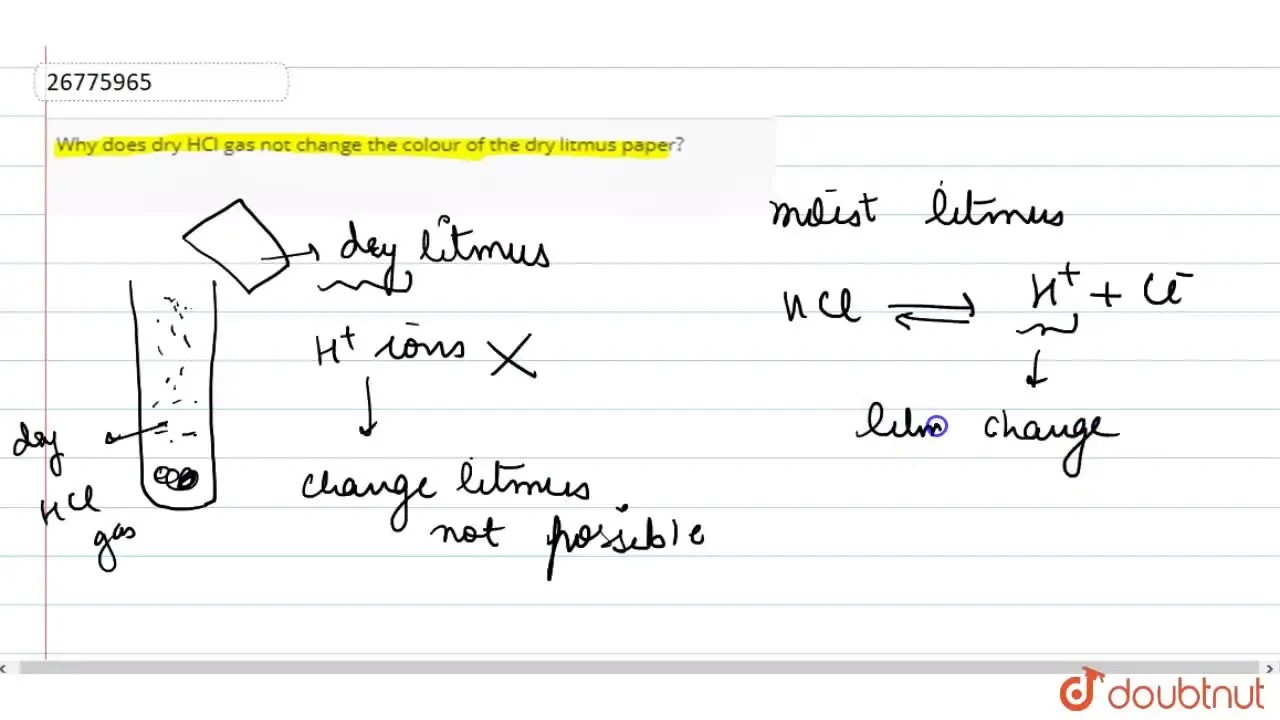 26775965
Why does dry HCl gas not change the colour of the dry litmus paper?
dry litmus
H+ ions X
change litmus
not possible
dry
HCl
gas
moist litmus
HCl ⇌ H+ + Cl-
litm change
doubtnut